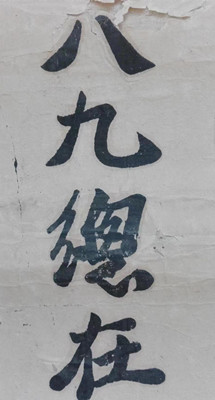 八九總在